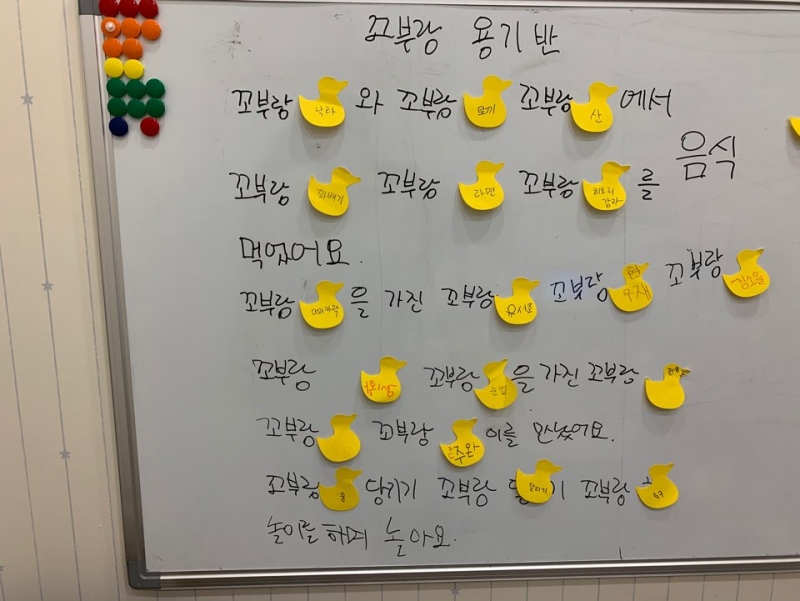 꼬부랑 용기반
꼬부랑 낙타 와 꼬부랑 토끼 꼬부랑 산 에서
꼬부랑 꽈배기 꼬부랑 라면 꼬부랑 회오리 감자 를 음식
먹었어요.
꼬부랑 머리카락 을 가진 꼬부랑 유서로 꼬부랑 꼬부랑 김소율
꼬부랑 꼬부랑 눈썹 을 가진 꼬부랑
꼬부랑 꼬부랑 주완 이를 만났어요.
꼬부랑 줄 당기기 꼬부랑 달리기 꼬부랑
놀이를 하며 놀아요.